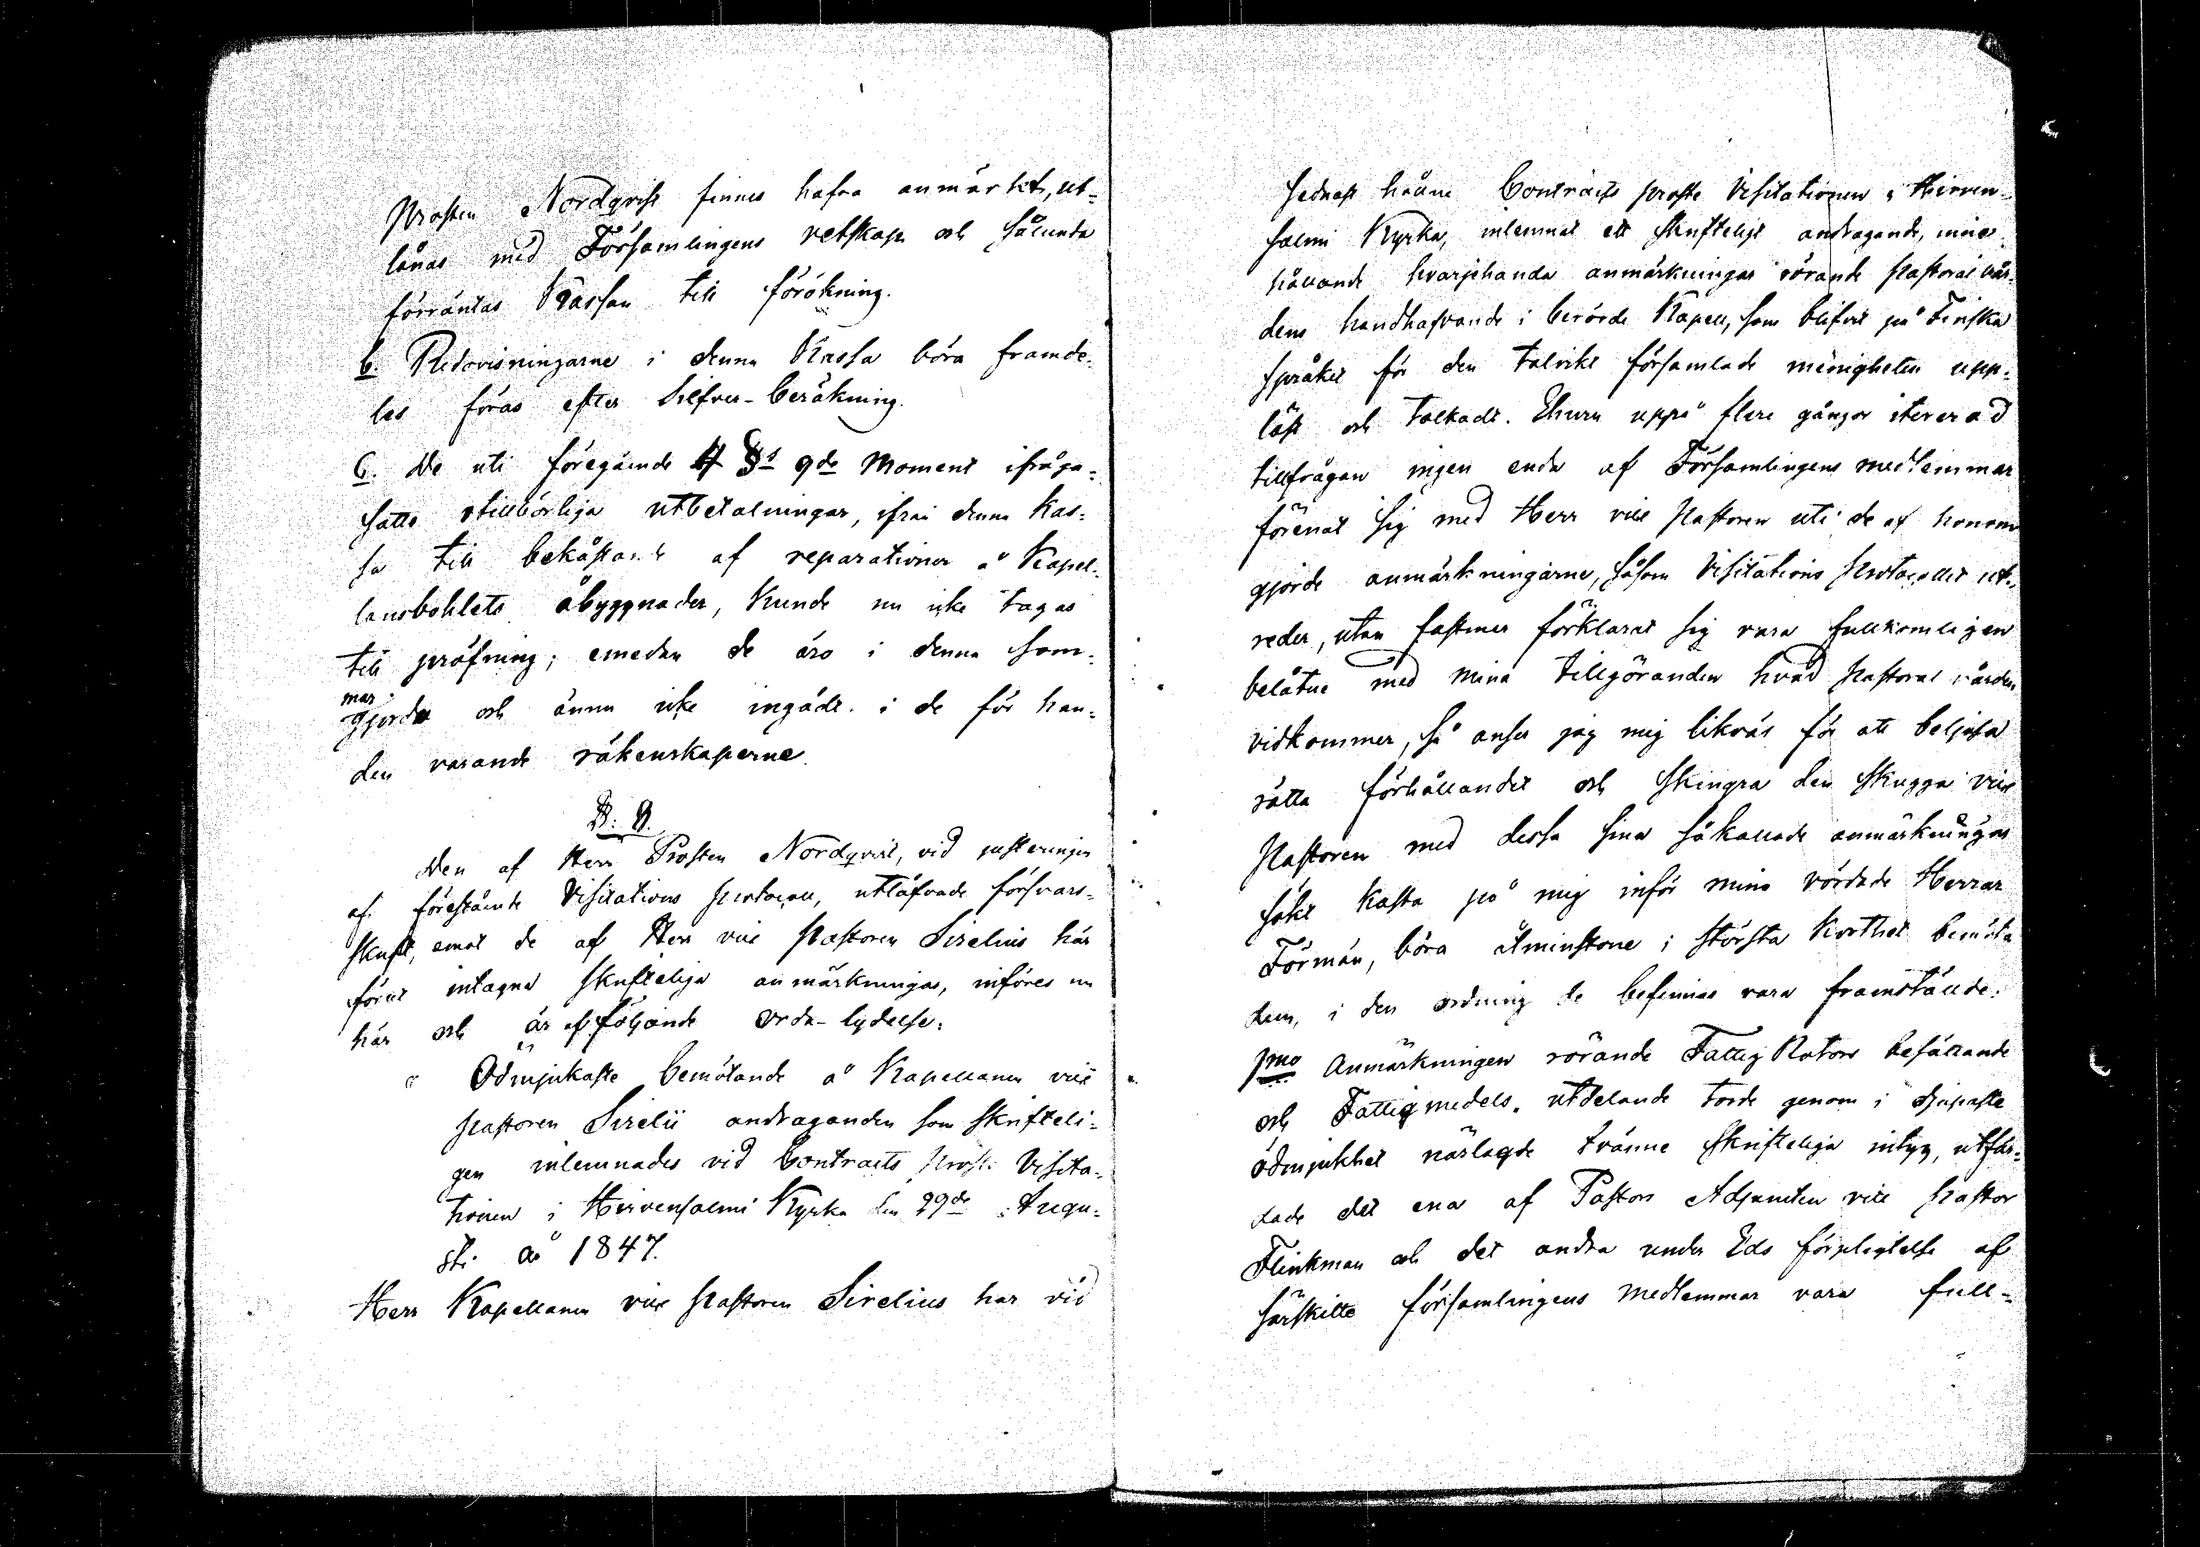 Prosten Nordqvist finnes hafva anmärkt, ut-
lånas med Församlingens vetskap och sålunda
förräntas Kassan till förökning.
b. Redovisningarne i denna Kassa böra framde-
les föras efter Silfver-beräkning.
C. De uti föregående § 9de Moment ifråga-
satte otillbörliga utbetalningar, ifrån denna Kas-
sa till bekåstande af reparationer å Kapel-
lansbohlets åbyggnader, kunde nu icke tagas
till pröfning; emedan de äro i denna som-
mar gjorda och ännu icke ingådt i de för han-
den varande räkenskaperne.
§. 9.
Den af Herr Prosten Nordqvist, vid justeringen
af förestående Visitations protocoll, utlåfvade försvars-
skrift, emot de af Herr vice Pastoren Sirelius här
förut intagna skrifteliga anmärkningar, införes nu
här och är af följande orda-lydelse:
" Ödmjukaste bemötande å Kapellanen vice
Pastoren Sirelii andraganden som skrifteli-
gen inlemnades vid Contracts Prost Visita-
tionen i Hirvensalmi Kyrka den 29de Augu-
sti år 1847.
Herr Kapellanen vice Pastoren Sirelius har vid
sednast hållne Contracts prosts Visitationen i Hirven-
salmi Kyrka, inlemnat ett skrifteligt andragande, inne-
hållande hvarjehanda anmärkningar rörande Pastoral vår-
dens handhafvande i berörde Kapell, som blifvit på Finska
språket för den talrikt församlade menigheten upp-
läst och tolkadt. Ehuru uppå flere gånger itererad
tillfrågan ingen enda af Församlingens medlemmar
förenat sig med Herr vice Pastoren uti de af honom
gjorde anmärkningarne, såsom Visitations Protocollet ut-
reder, utan fastmer förklarat sig vara fullkomligen
belåtne med mina tillgöranden hvad Pastoral vården
vidkommer, så anser jag mig likväl för att belysa
rätta förhållandet och skingra den skugga vice
Pastoren med dessa sina såkallade anmärkningar
sökt kasta på mig inför mina vördade Herrar
Förmän, böra åtminstone i största korthet bemöta
dem, i den ordning de befinnas vara framstälde.
1mo Anmärkningen rörande Fattig Rotors besättande
och Fattigmedels utdelande torde genom i djupaste
ödmjukhet närlagde tvänne skrifteliga intyg, utfär-
dade det ena af Pastors Adjuncten vice Pastor
Flinkman och det andra under Eds förpligtelse af
särskilte församlingens medlemmar vara full-